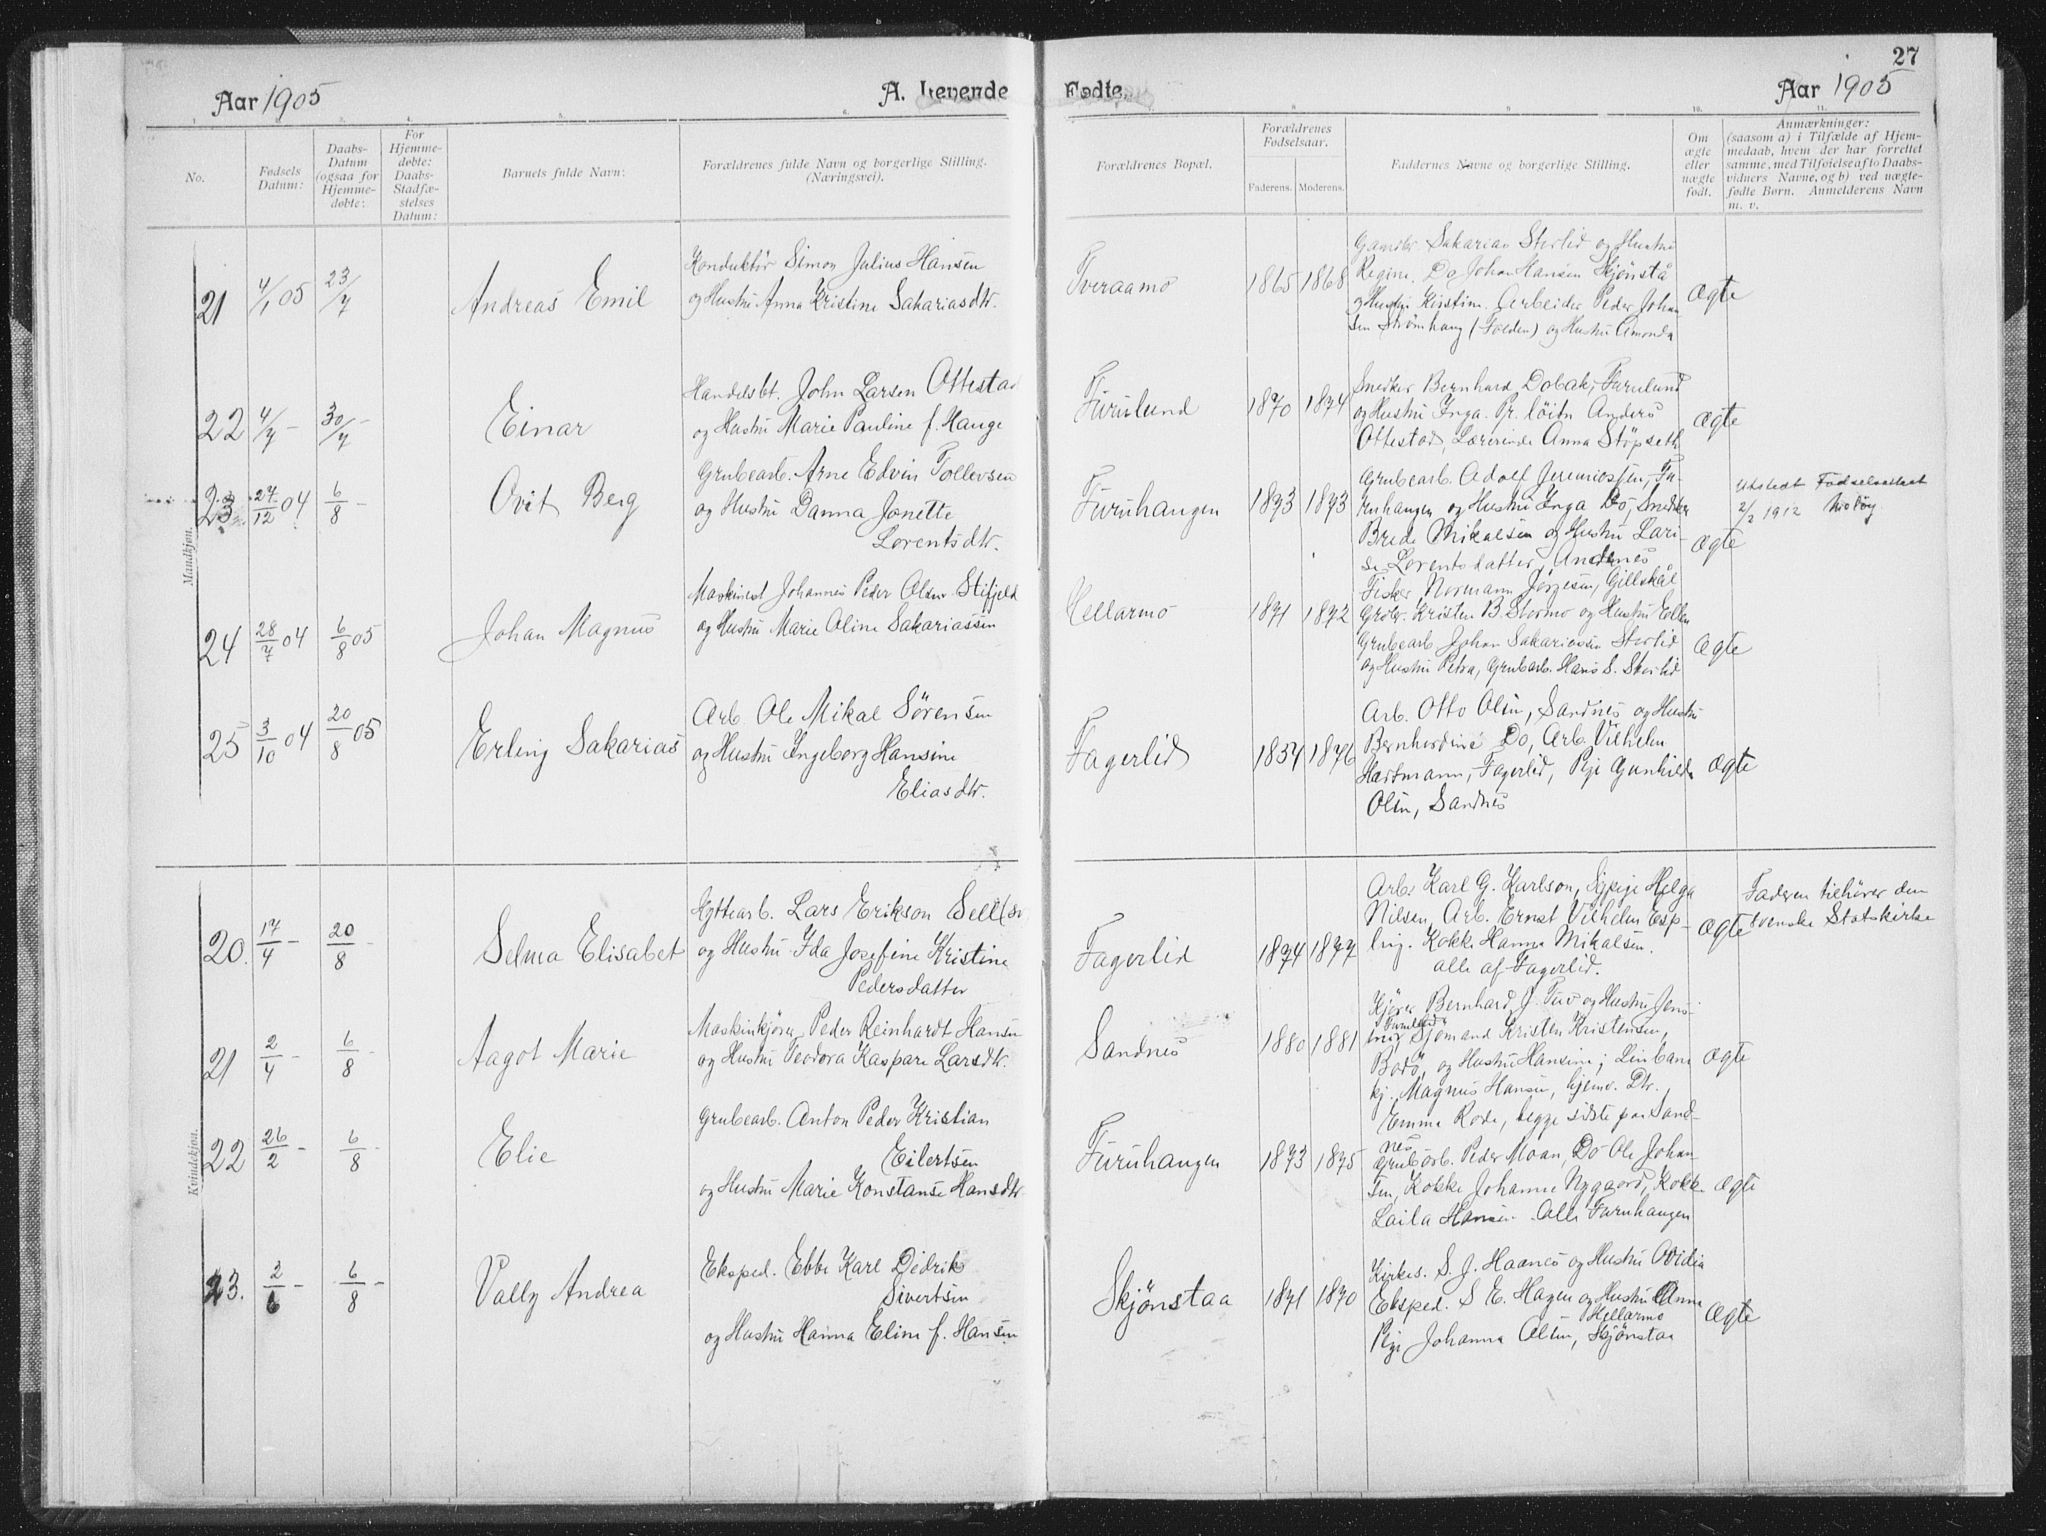 27
Aar 1905
A. Levende
Fødte.
Aar 1905
No.
Fødsels Datum:
Daabs-Datum (ogsaa for Hjemme-døbte:
For Hjemme-døbte: Daabs-Stadfæ-stelses Datum:
Barnets fulde Navn:
Forældrenes fulde Navn og borgerlige Stilling. (Næringsvei).
Forældrenes Bopæl.
Forældrenes Fødselsaar.
Faderens. Moderens.
Faddernes Navne og borgerlige Stilling.
Om ægte eller uægte født.
Anmærkninger: (saasom a) i Tilfælde af Hjem-medaab, hvem der har forrettet samme, med Tilføielse af to Daabs-vidners Navne, og b) ved uægte-fødte Børn. Anmelderens Navn m. v.
Mandkjøn.
21 4/1 05 23/7 Andreas Emil
Konduktør Simon Julius Hansen
og Hustru Anna Kristine Sakariasdtr.
Tveraamo 1865 1868
Gaardbr. Sakarias Sterlid og Hustru
Regine. Do Johan Hansen Skjønstå
og Hustru Kirstine. Arbeider Peder Johan
sen Strømhaug (Folden) og Hustru Amonda
Ægte
22 4/7 - 30/7 - Einar
Handelsbt. John Larsen Ottestad
og Hustru Marie Pauline f. Hauge
Furulund 1870 1874
Snedker Bernhard Dobak, Furulund
og Hustru Inga. Pr. løitn Anders
Ottestad, Lærerinde Anna Støpseth
Ægte
23 27/12 04 6/8 - Ovit Berg
Grubearb. Arne Edvin Tollevsen
og Hustru Danna Jonette
Lorentsdtr.
Furuhaugen 1873 1873
Grubearb. Adolf Jeremiassen, Fu-
ruhaugen og Hustru Inga Do, Snedker
Brede Mikalsen og Hustru Lari-
se Lorentsdatter, Andenes
Ægte
Utstedt Fødselsattest
2/2 1912
24 28/7 04 6/8 05 Johan Magnus
Maskinist Johannes Peder Olsen Stifjeld
og Hustru Marie Oline Sakariassen
Hellarmo 1871 1872
Fisker Normann Jørgesen, Gillskål
Grdbr. Kristen B. Stormo og Hustru Ellen
Grubearb Johan Sakariassen Sterlid
og Hustru Petra, Grubarb. Hans S. Sterlid
Ægte
25 3/10 04 20/8 05 Erling Sakarias
Arb. Ole Mikal Sörensen
og Hustru Ingeborg Hansine
Eliasdtr.
Fagerlid 1854 1876
Arb. Otto Olsen, Sandnes og Hustru
Bernhardine Do, Arb. Vilhelm
Hartmann, Fagerlid, Pige Gunhilda
Olsen, Sandnes
Ægte
Kvindekjøn.
20. 17/4 - 20/8 - Selma Elisabet
Hyttearb. Lars Erikson Sell
og Hustru Ida Josefine Kristine
Pedersdatter
Fagerlid 1874 1877
Arb. Karl G. Karlson, Sypige Helga
Nilsen, Arb. Ernst Vilhelm Esp-
ling. Kokke Hanna Mikalsen.
alle af Fagerlid.
Ægte
Faderen tilhører den
svenske Statskirke
21 2/4 - 6/8 - Aagot Marie
Maskinkjører Peder Reinhardt Hansen
og Hustru Teodora Kaspare Larsdtr.
Sandnes 1880 1881
Kjører Bernhard J. Furu og Hustru Jens-
Furulund
Sjømand Kristen Kristensen,
Bodø, og Hustru Hansine; Linbane
kj. Magnus Hansen, hjemv. Dtr.
Emma Rode, begge sidste paa Sand-
nes
Ægte
22 26/2 - 6/8 - Elie
Grubearb. Anton Peder Kristian
Eilertsen
og Hustru Marie Konstanse Hansdtr.
Furuhaugen 1873 1875
Grubarb. Peder Moan, Do Ole Johan-
sen, Kokke Johanne Nygaard, Kokke
Laila Hansen. Alle Furuhaugen
Ægte
23. 2/6 - 6/8 - Vally Andrea
Eksped. Ebbe Karl Didrik
Sivertsen
og Hustru Hanna Eline f. Hansen
Skjönstaa 1871 1870
Kirkes. S. J. Haanes og Hustru Ovidia
Eksped. S E. Hagen og Hustru Anna
Hellarmo
Pige Johanna Olsen, Skjönstaa
Ægte